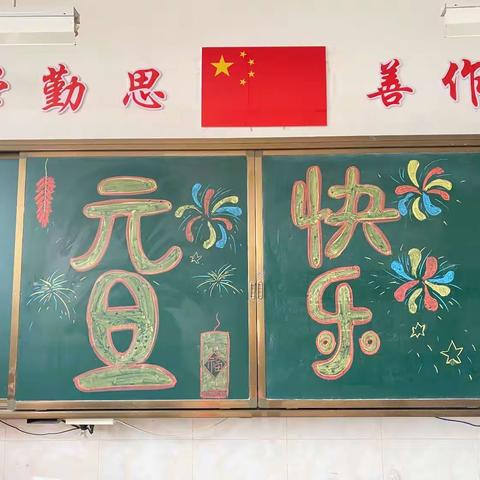 勤思
善作
元旦
快乐
福